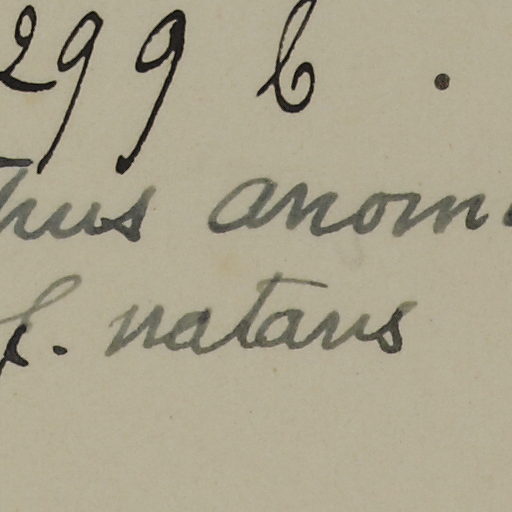 299 b.
thus anom
f. natans